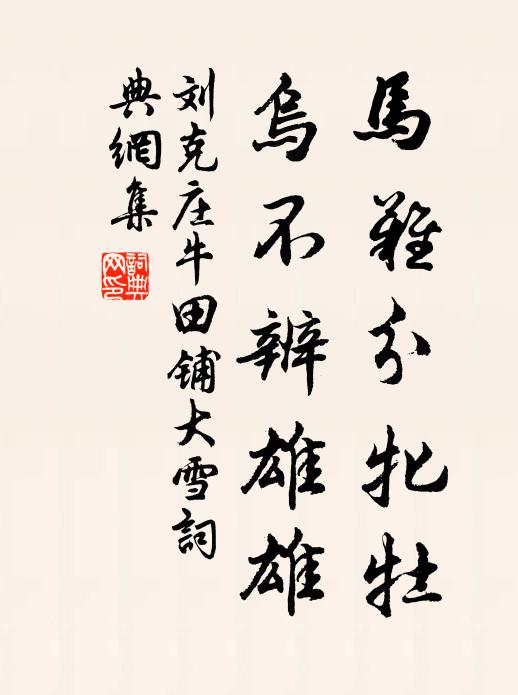 馬難分牝牡
烏不辨雄雄
刘克庄牛田铺大雪詞
典網集
詞典网印